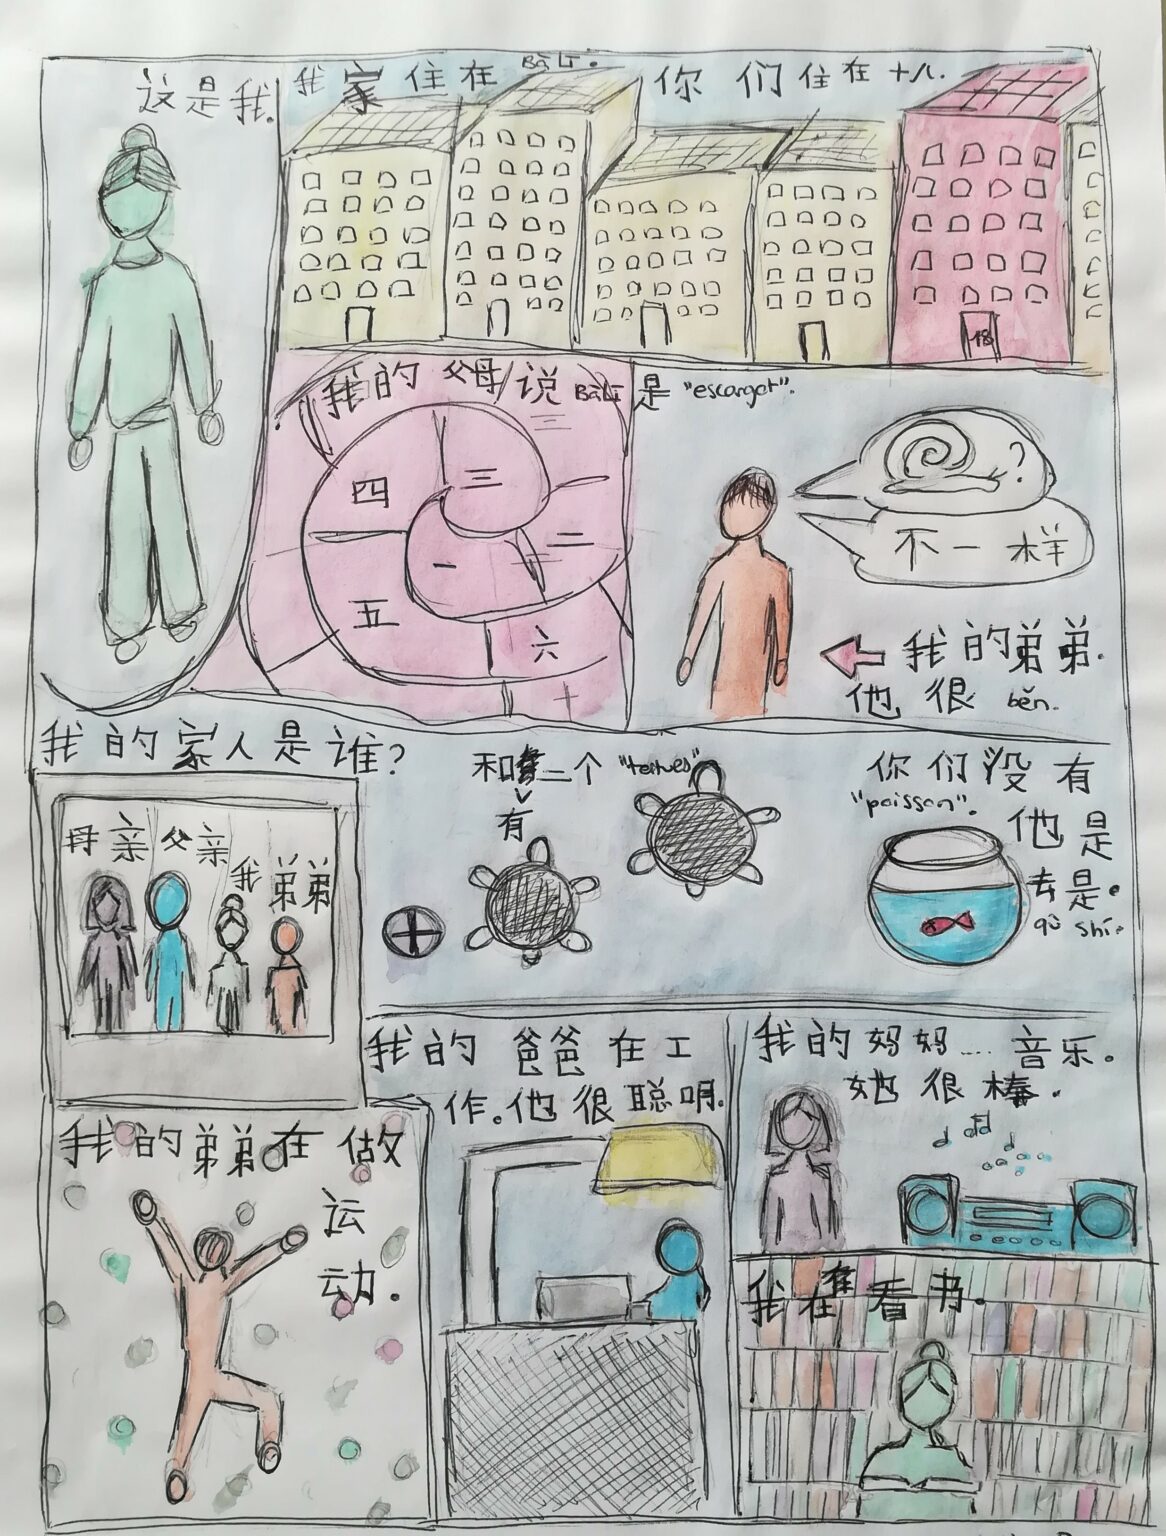 这是我.
我家住在 Bālí.
你们住在十八.
18
我的父母说 Bālí 是 "escargot".
一
二
三
四
五
六
?
不一样
我的弟弟.
他很 běn.
我的家人是谁?
母亲
父亲
我
弟弟
和有二个 "tortues"
你们没有
"poisson".
他是
去是.
qù shí.
我的弟弟在做
运
动.
我的爸爸在工
作.他很聪明.
我的妈妈.... 音乐.
她很棒.
我在看书.